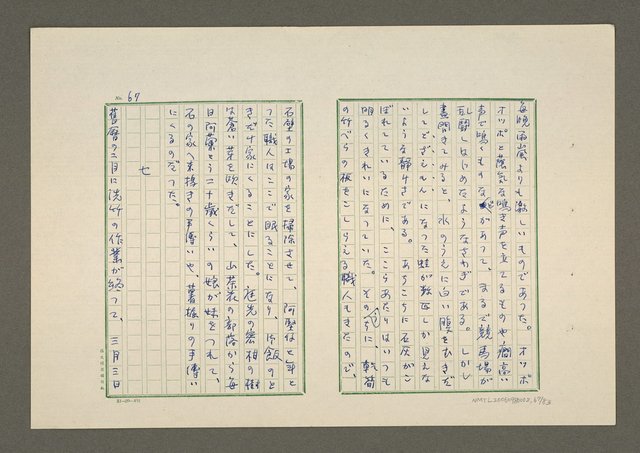 毎晩雨嵐よりも激しいものであった。オッポ
オッポと陰気な鳴き声を立てるものや、癇高い
声で鳴くものなどがあって、まるで競馬場が
乱闘しはじめたようなさわぎである。しかし
昼間きてみると、水のうえに白い腹をむきだ
してどざえもんになった蛙が数匹しか見えな
いような静けさである。あちこちに石灰がこ
ぼれているために、ここらあたりはいつも
明るくきれいになっていた。そのうちに、乾
の竹べらの板をこしらえる職人もきたので、
No. 67
石壁の工場の家を掃除させて、阿堅は七年と
った職人はここで眠ることになり、御飯のと
きだけ家にくることにした。庭先の
は蒼い芽を吹きだして、山茶花の部落から毎
日阿葉という二十歳くらいの娘が妹をつれて、
石の家へ来て搗きの手伝いや、薯掘りの手伝い
にくるのだった。
七
旧暦の二月に洗竹の作業が終って、三月三日
NMTL20050030002_67/93